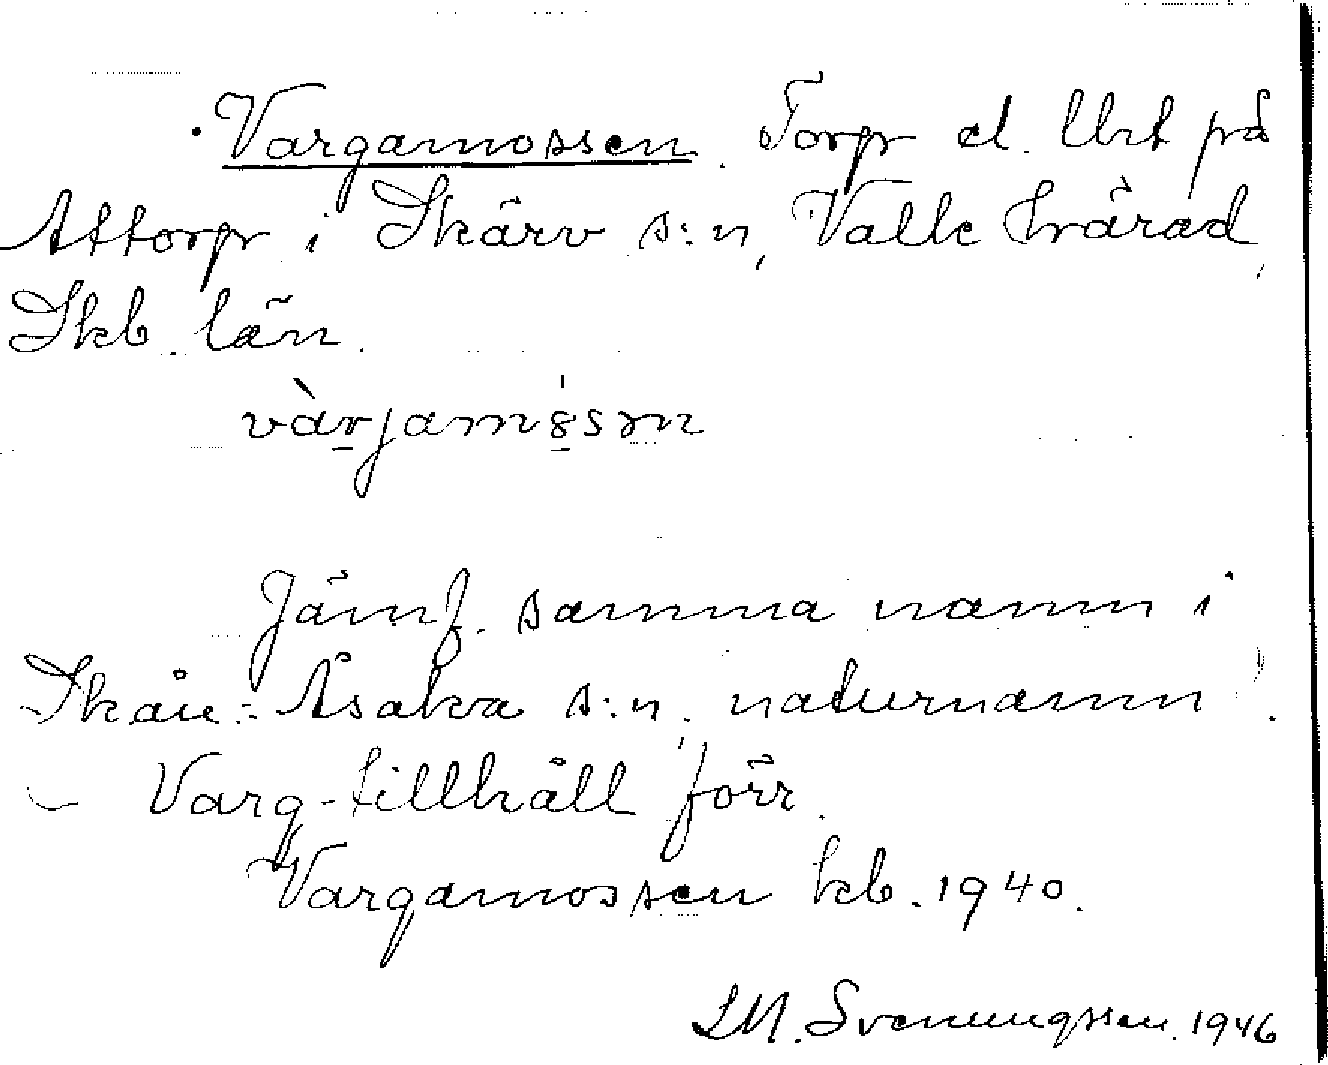 Vargamossen. Torp el. Urt på
Attorp i Skärv s:n, Valle härad,
Skb. län.
vàrjam8sɔn
Jämf. samma namn i
Skån-Åsaka s:n, naturnamn.
- Varg-tillhåll förr.
Vargamossen kb. 1940.
LM. Svenungssen. 1946